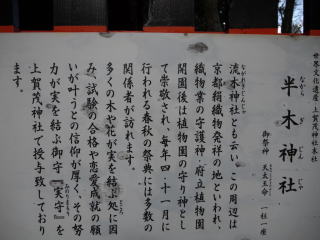 世界文化遺産 上賀茂神社末社
なから ぎ じんじゃ
半木神社
御祭神 天太玉命 一柱一座
ながれきじんじゃ
流木神社とも云い、この周辺は
京都絹織物発祥の地といわれ、
織物業の守護神・府立植物園
開園後は植物園の守り神とし
て崇敬され、毎年四・十一月に
行われる春秋の祭典には多数の
関係者が訪れます。
多くの木や花が実を結ぶ処に因
み、試験の合格や恋愛成就の願
いが叶うとの信仰が厚く、その努
力が実を結ぶ御守『実守』を
上賀茂神社で授与致しており
ます。